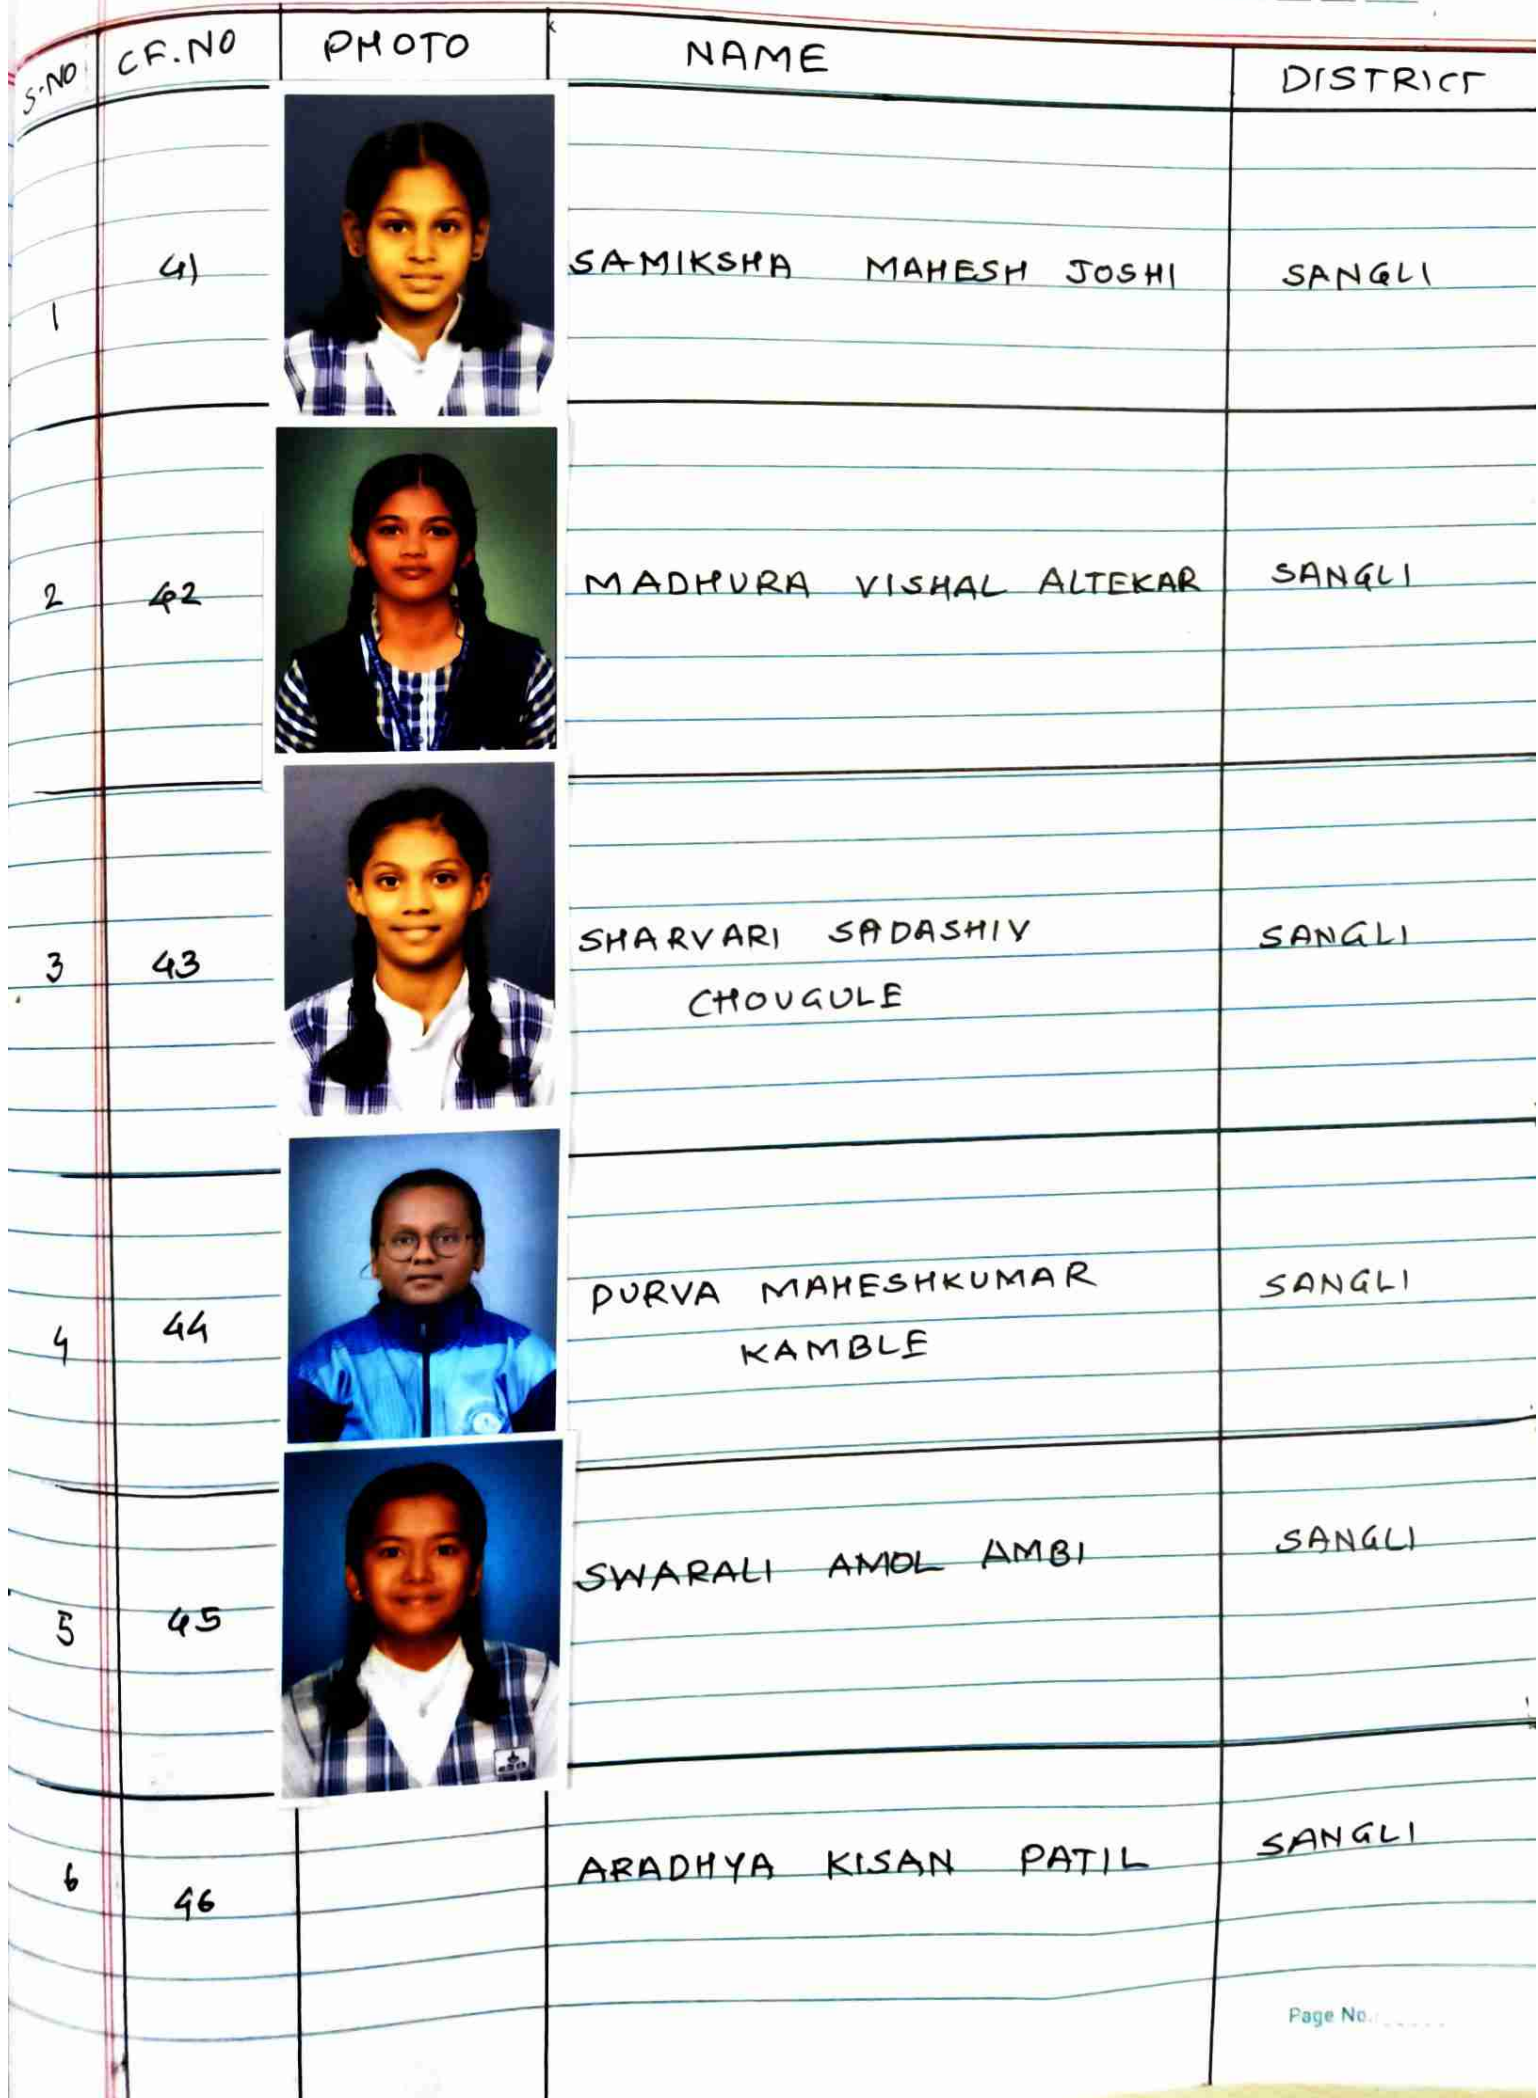 S.NO CF.NO PHOTO NAME DISTRICT
1 41 SAMIKSHA MAHESH JOSHI SANGLI
2 42 MADHURA VISHAL ALTEKAR SANGLI
3 43 SHARVARI SADASHIV SANGLI
CHOUGULE
4 44 PURVA MAHESHKUMAR SANGLI
KAMBLE
5 45 SWARALI AMOL AMBI SANGLI
6 46 ARADHYA KISAN PATIL SANGLI
Page No.